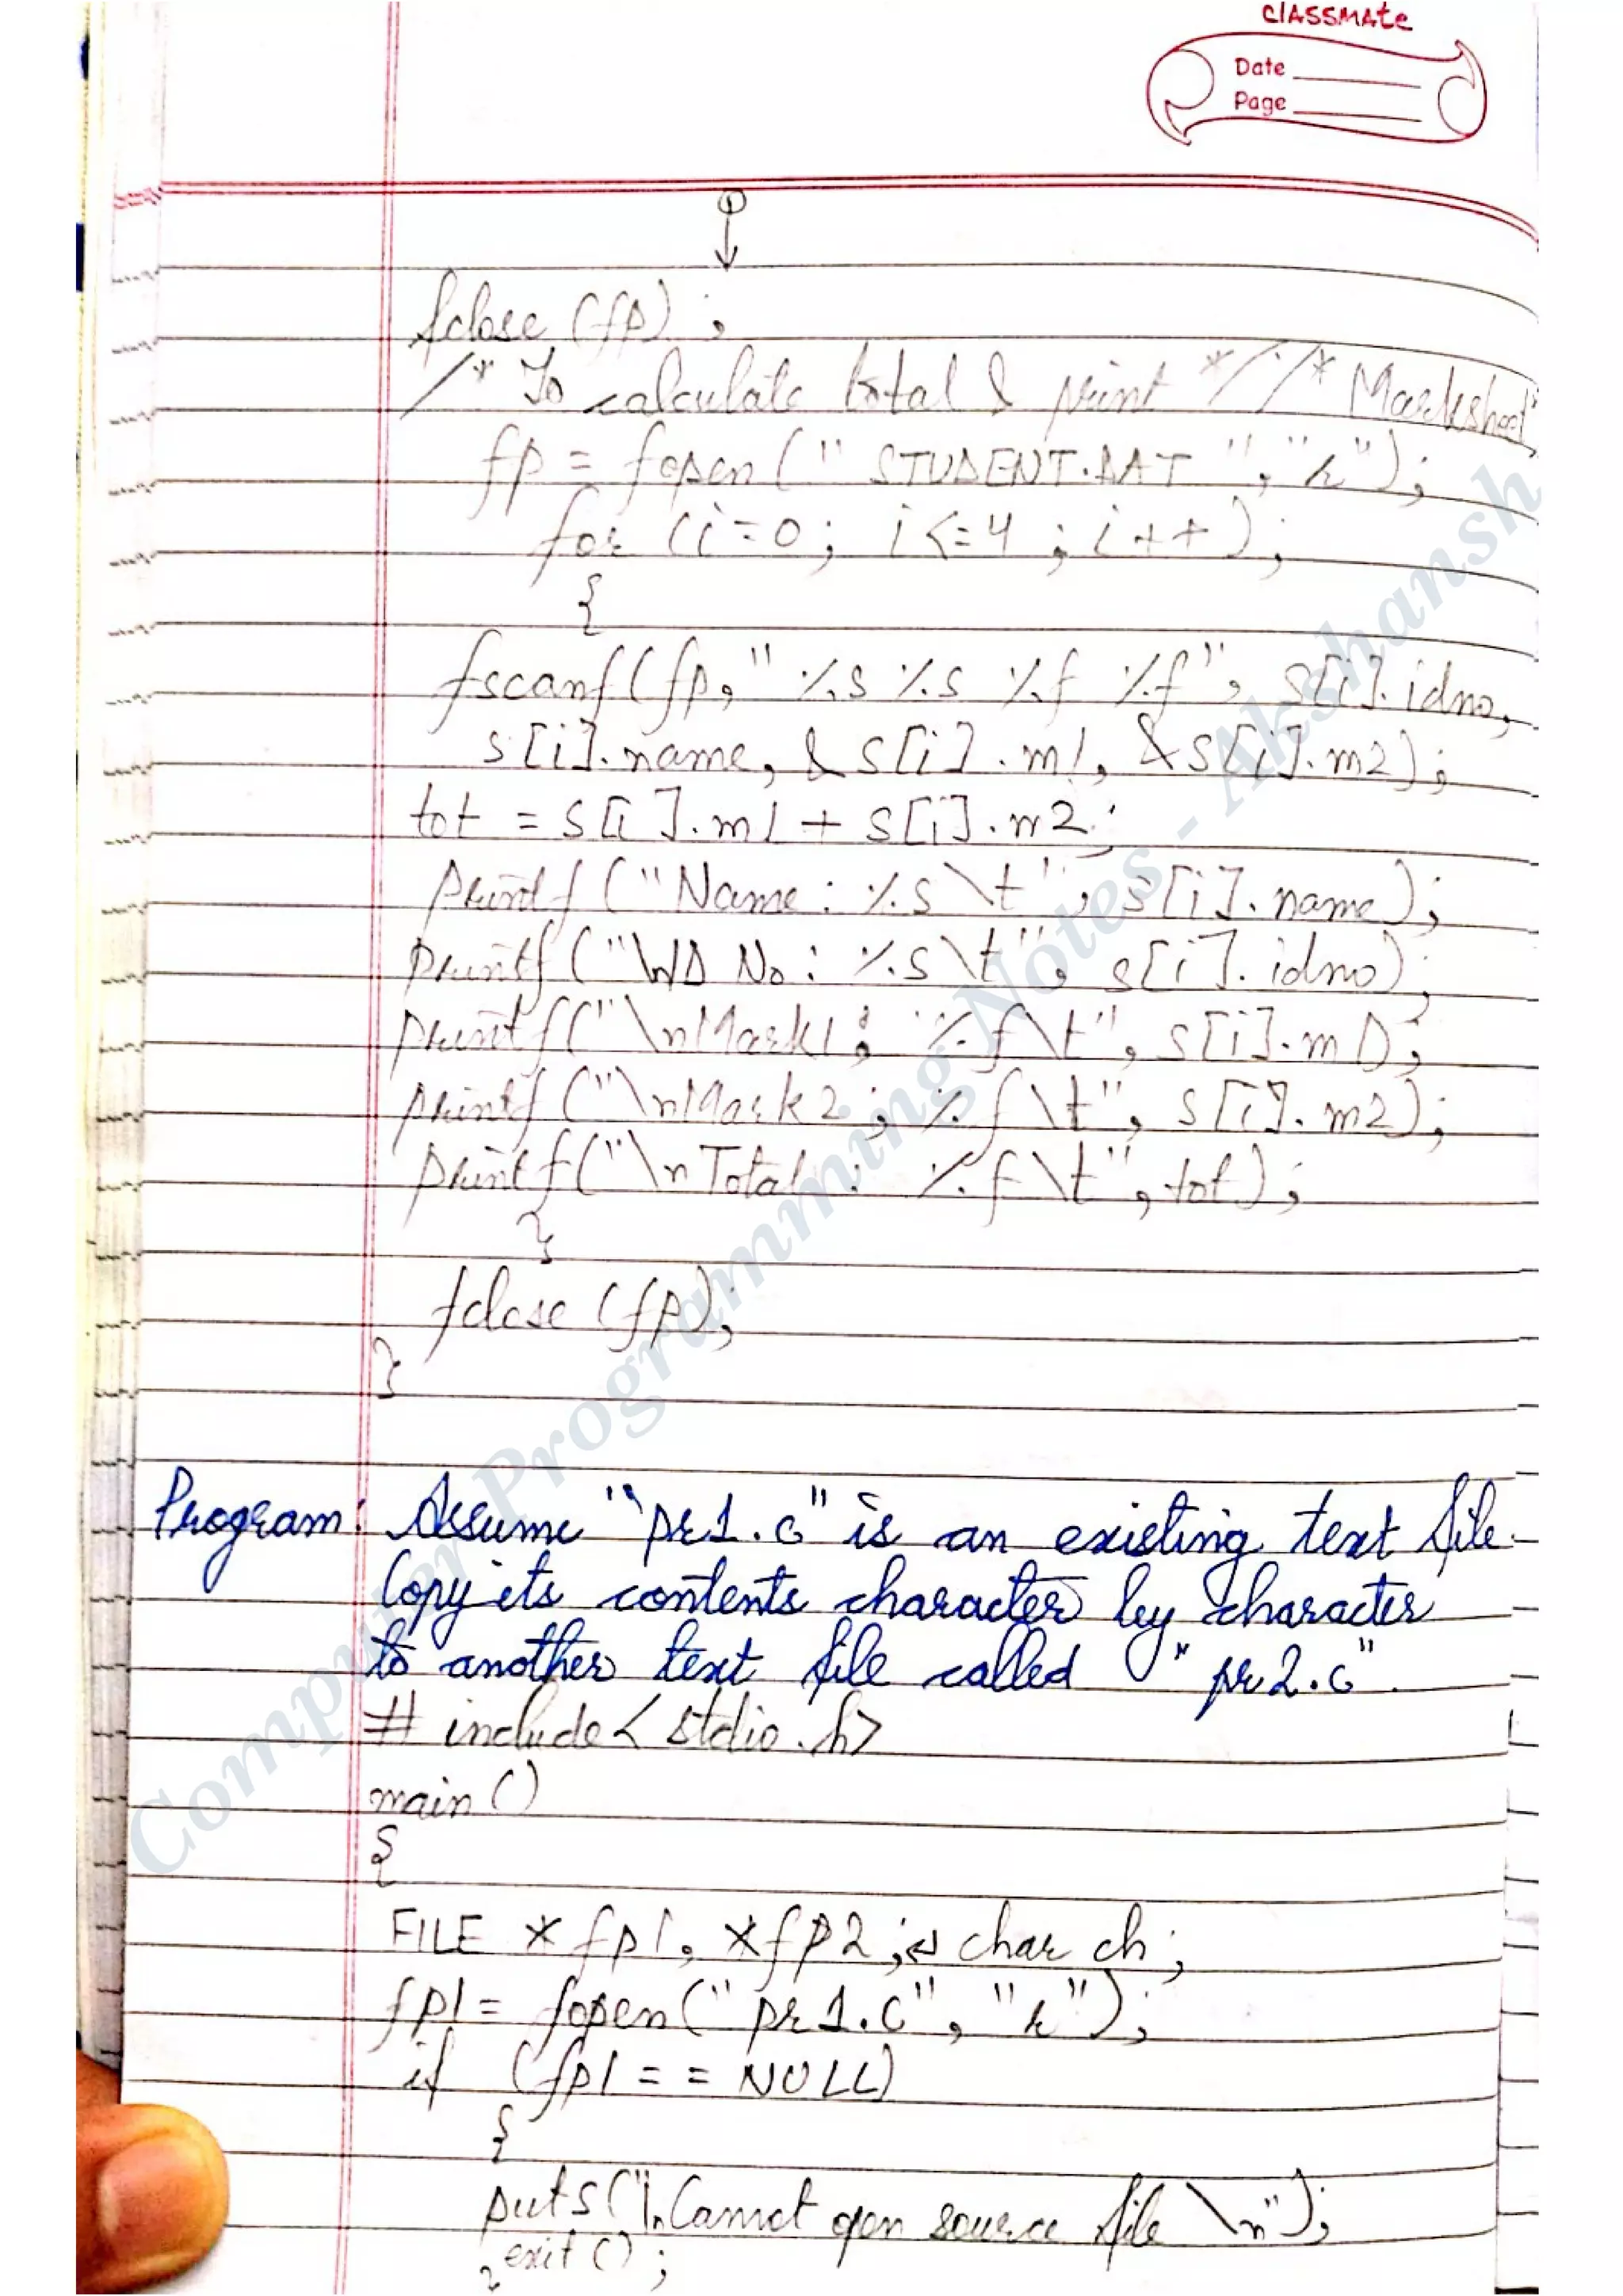 classmate
Date
Page
fclose (fp);
/* To calculate total & print */ /* Marksheet
fp = fopen (" STUDENT.DAT ", "r");
for (i=0; i<=4 ; i++);
{
fscanf(fp," %s %s %f %f", s[i].idno,
s[i].name, &s[i].m1, &s[i].m2);
tot = s[i].m1 + s[i].m2;
printf ("Name: %s \t", s[i].name);
printf ("\ID No: %s \t", s[i].idno);
printf("\nMark1: %f \t", s[i].m1);
printf ("\nMark2: %f \t", s[i].m2);
printf("\nTotal : %f \t", tot);
}
fclose (fp);
}
Program: Assume "pr1.c" is an existing text file.
Copy its contents character by character
to another text file called "pr2.c".
# include < stdio.h>
main ()
{
FILE *fp1, *fp2; char ch;
fp1 = fopen("pr1.c", "r");
if (fp1 == NULL)
{
puts("\nCannot open source file \n");
exit ();
}
Computer Programming Notes - Akshansh